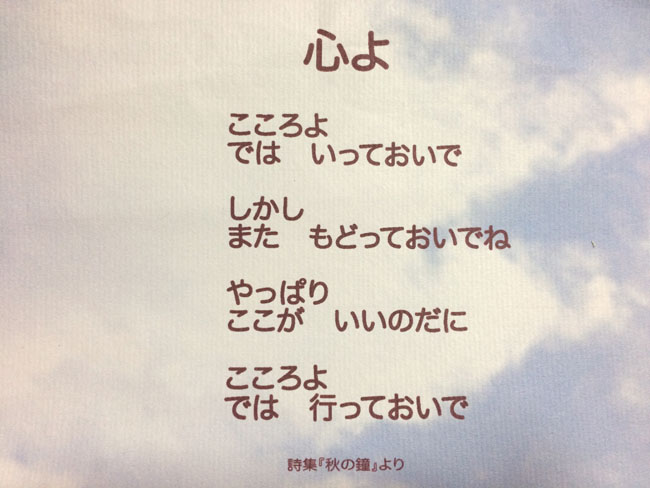 心よ
こころよ
では　いっておいで
しかし
また　もどっておいでね
やっぱり
ここが　いいのだに
こころよ
では　行っておいで
詩集『秋の鐘』より